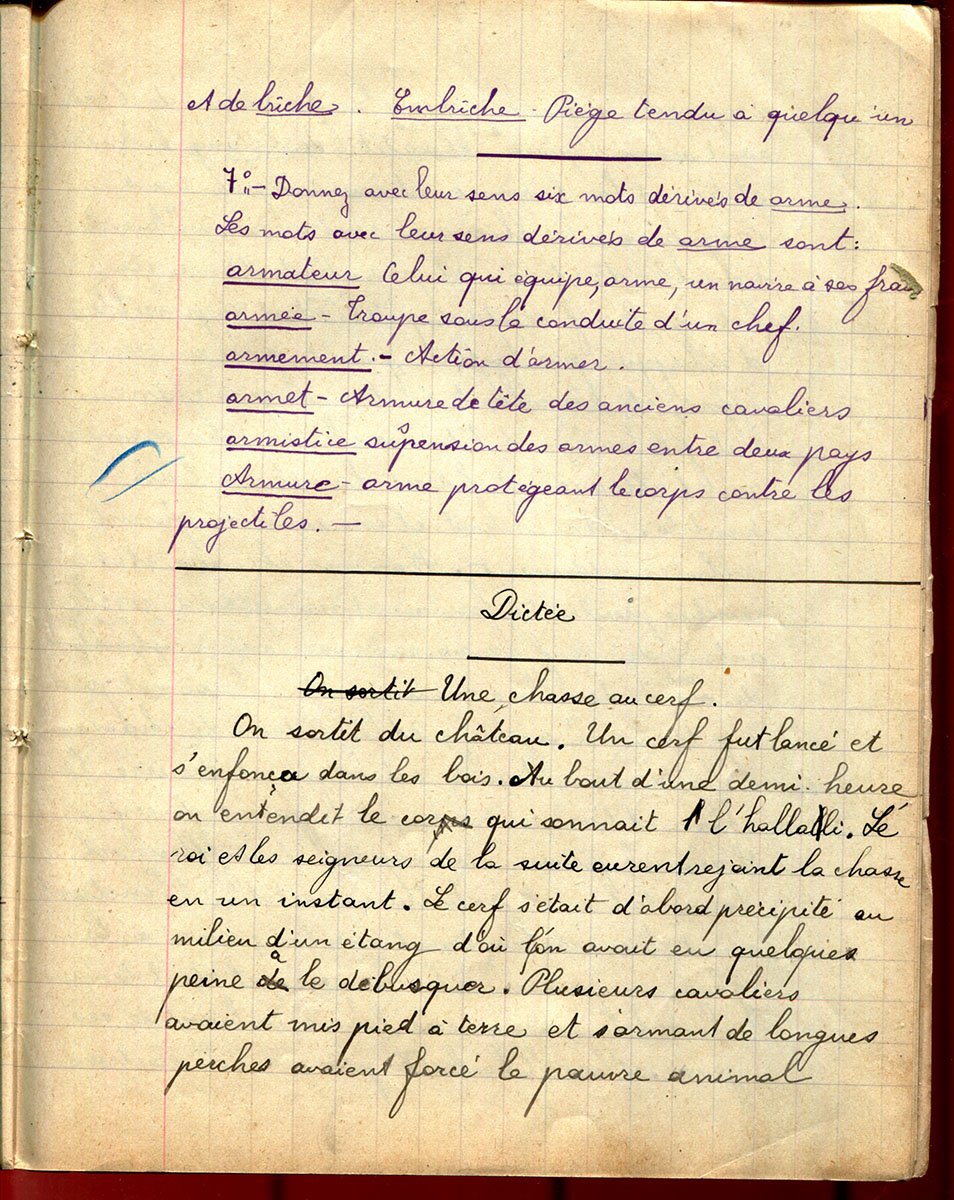 et de brîche. Embrîche - Piège tendu à quelqu'un
7°. - Donnez avec leur sens six mots dérivés de arme.
Les mots avec leur sens dérivés de arme sont :
armateur Celui qui équipe, arme, un navire à ses frais
armée - Troupe sous la conduite d'un chef.
armement. - Action d'armer.
armet - Armure de tête des anciens cavaliers
armistice suspension des armes entre deux pays
Armure - arme protégeant le corps contre les
projectiles. -
Dictée
On sortit Une chasse au cerf.
On sortit du château. Un cerf fut lancé et
s'enfonça dans les bois. Au bout d'une demi-heure
on entendit le corps qui sonnait l'hallali. Le
roi et les seigneurs de la suite eurent rejoint la chasse
en un instant. Le cerf s'était d'abord précipité au
milieu d'un étang d'où l'on avait eu quelques
peine à le débusquer. Plusieurs cavaliers
avaient mis pied à terre et s'armant de longues
perches avaient forcé le pauvre animal